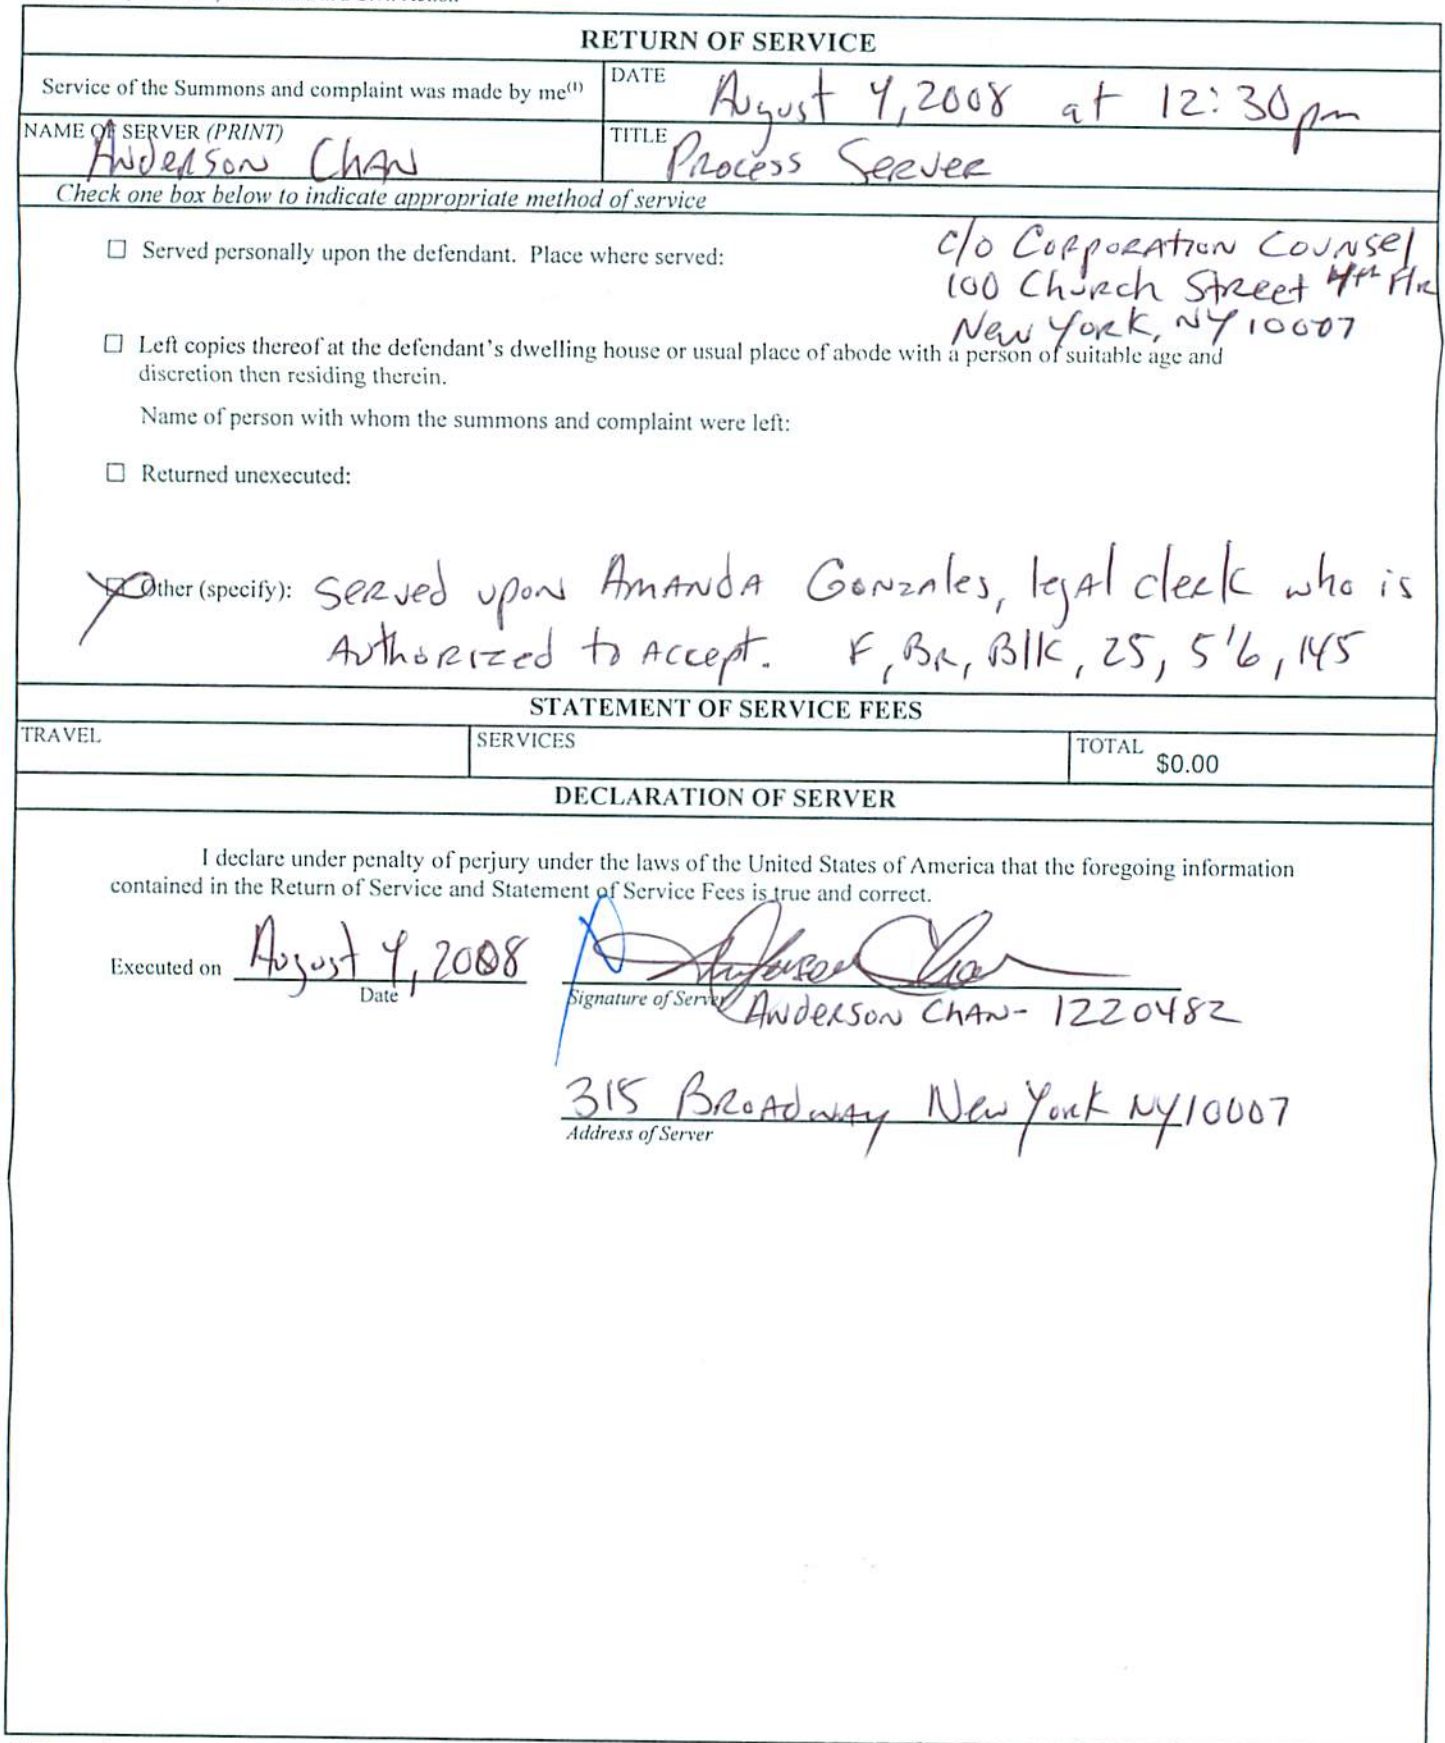 RETURN OF SERVICE
Service of the Summons and complaint was made by me(1)
DATE
August 4, 2008 at 12:30pm
NAME OF SERVER (PRINT)
Anderson Chan
TITLE
Process Server
Check one box below to indicate appropriate method of service
☐ Served personally upon the defendant. Place where served:
c/o Corporation Counsel
100 Church Street 4th Flr
New York, NY 10007
☐ Left copies thereof at the defendant's dwelling house or usual place of abode with a person of suitable age and
discretion then residing therein.
Name of person with whom the summons and complaint were left:
☐ Returned unexecuted:
Other (specify): Served upon Amanda Gonzales, legal clerk who is
Authorized to Accept. F, Br, Blk, 25, 5'6, 145
STATEMENT OF SERVICE FEES
TRAVEL
SERVICES
TOTAL
$0.00
DECLARATION OF SERVER
I declare under penalty of perjury under the laws of the United States of America that the foregoing information
contained in the Return of Service and Statement of Service Fees is true and correct.
Executed on August 4, 2008
Date
Anderson Chan
Signature of Server
Anderson Chan- 1220482
315 Broadway New York NY 10007
Address of Server